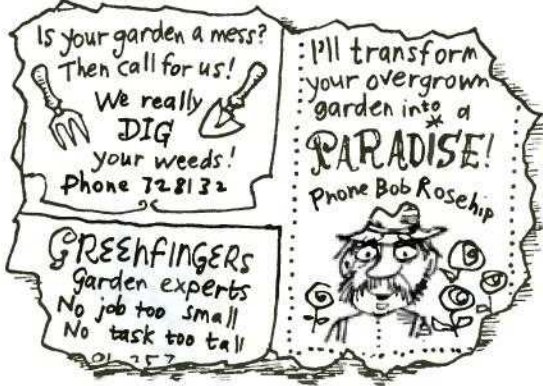 Is your garden a mess?
Then call for us!
We really
DIG
your weeds!
Phone 728132
GREENFINGERS
Garden experts
No job too small
No task too tall
I'll transform
your overgrown
garden into a
PARADISE!
Phone Bob Rosehip